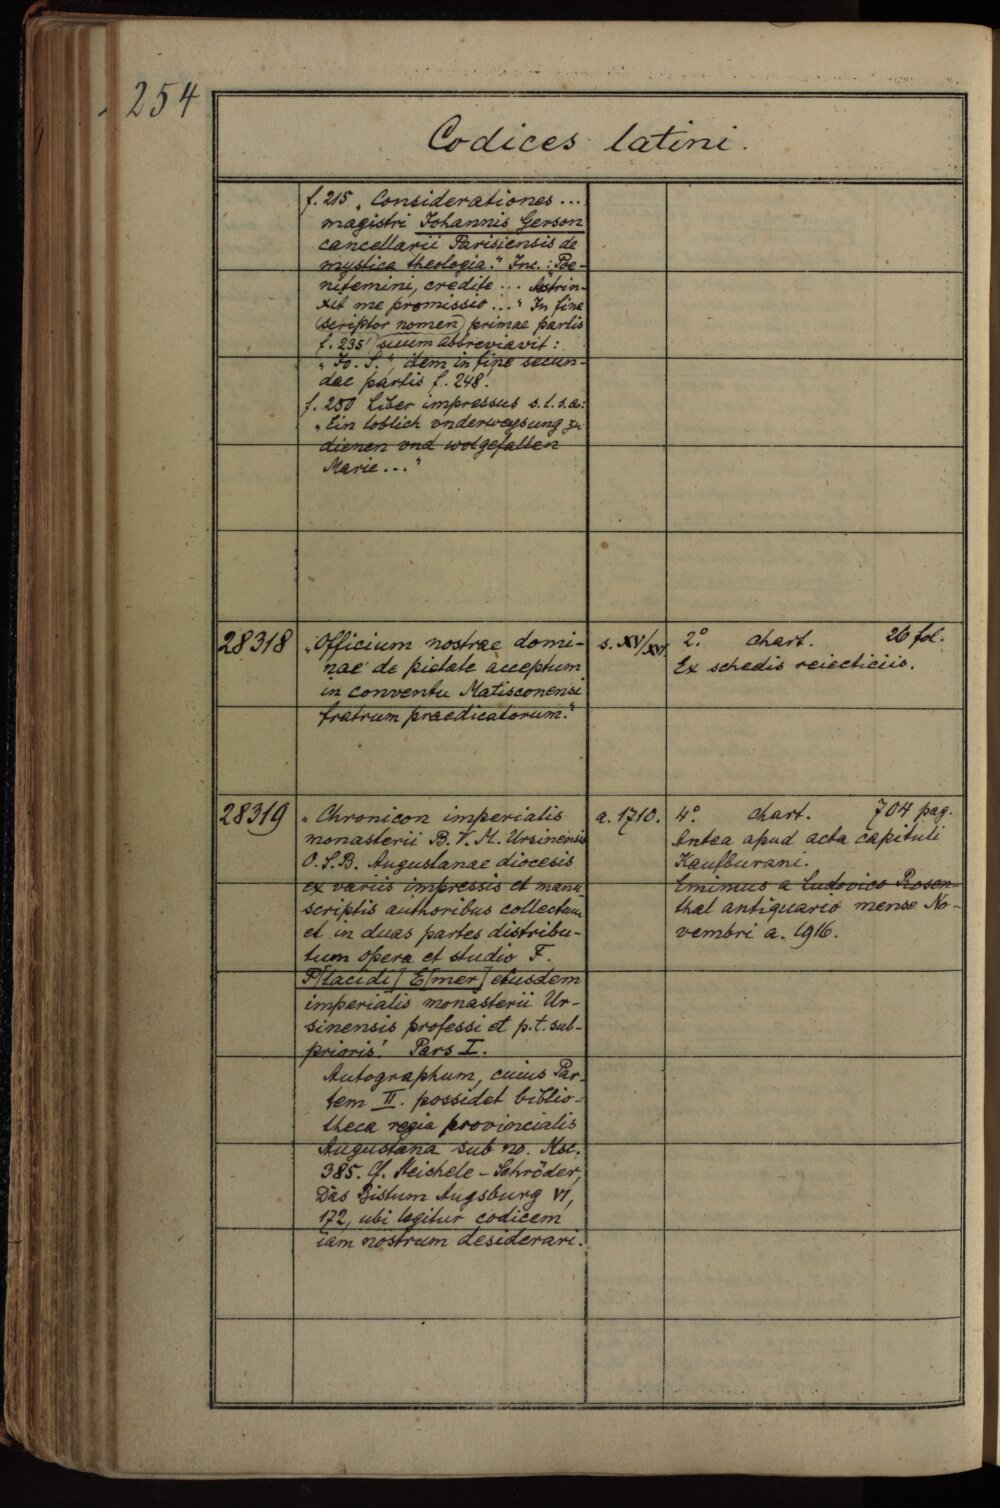 254
Codices latini.
f. 215 „Considerationes ...
magistri Johannis Gerson
cancellarii Parisiensis de
mystica theologia." Inc.: „Poe-
nitemini, credite ... Astrin-
xit me promissio ..." In fine
(scriptor nomen) primae partis
f. 235' suum abbreviavit:
„Jo. S.", item in fine secun-
dae partis f. 248'.
f. 250 Liber impressus s. l. s. a.:
„Ein loblich vnderweysung zu
dienen vnd wolgefallen
Marie ..."
28318
„Officium nostrae domi-
nae de pietate acceptum
in conventu Matisconensi
fratrum praedicatorum."
s. XV/XVI.
2° chart. 26 fol.
Ex schedis reiecticiis.
28319
„Chronicon imperialis
monasterii B. V. M. Ursinensis
O. S. B. Augustanae diocesis
ex variis impressis et manu
scriptis authoribus collectum
et in duas partes distribu-
tum opera et studio F.
P[lacidi] E[mer] eiusdem
imperialis monasterii Ur-
sinensis professi et p. t. sub-
prioris." Pars I.
Autographum, cuius Par-
tem II. possidet biblio-
theca regia provincialis
Augustana sub no. Msc.
385. Cf. Steichele-Schröder,
Das Bistum Augsburg VI,
172, ubi legitur codicem
iam nostrum desiderari.
a. 1710.
4° chart. 704 pag.
Antea apud acta capituli
Kaufburani.
Emimus a Ludovico Rosen-
thal antiquario mense No-
vembri a. 1916.